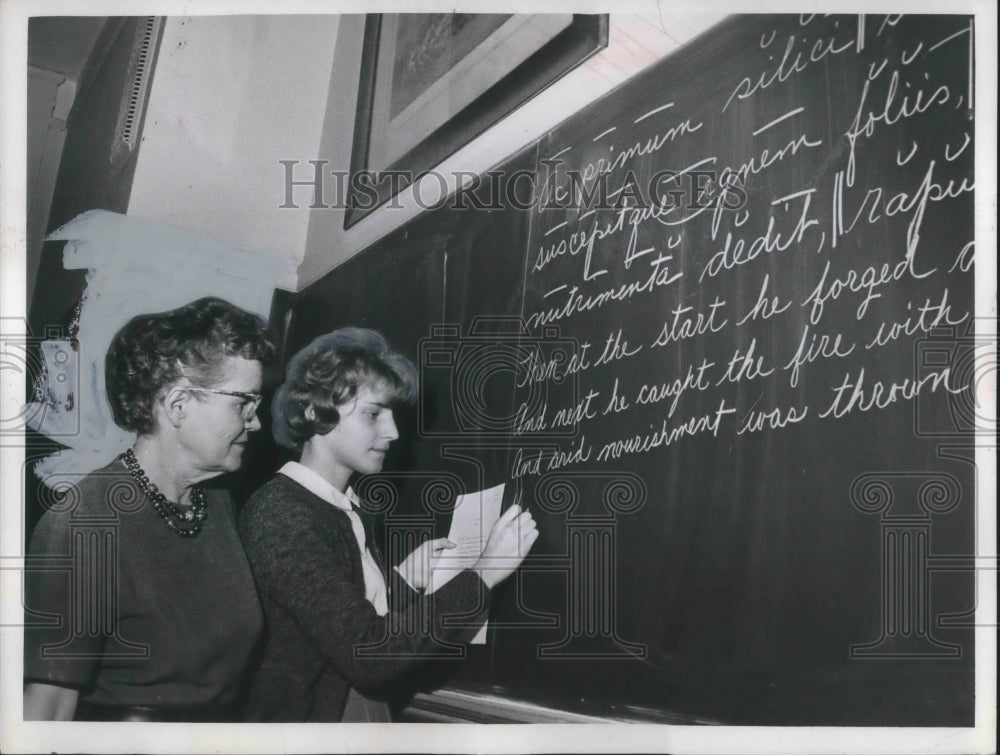 Ac primum silici s
suscepitque ignem foliis,
nutrimenta dedit, || rapu
Then at the start he forged a
And next he caught the fire with
And arid nourishment was thrown
HISTORIC IMAGES